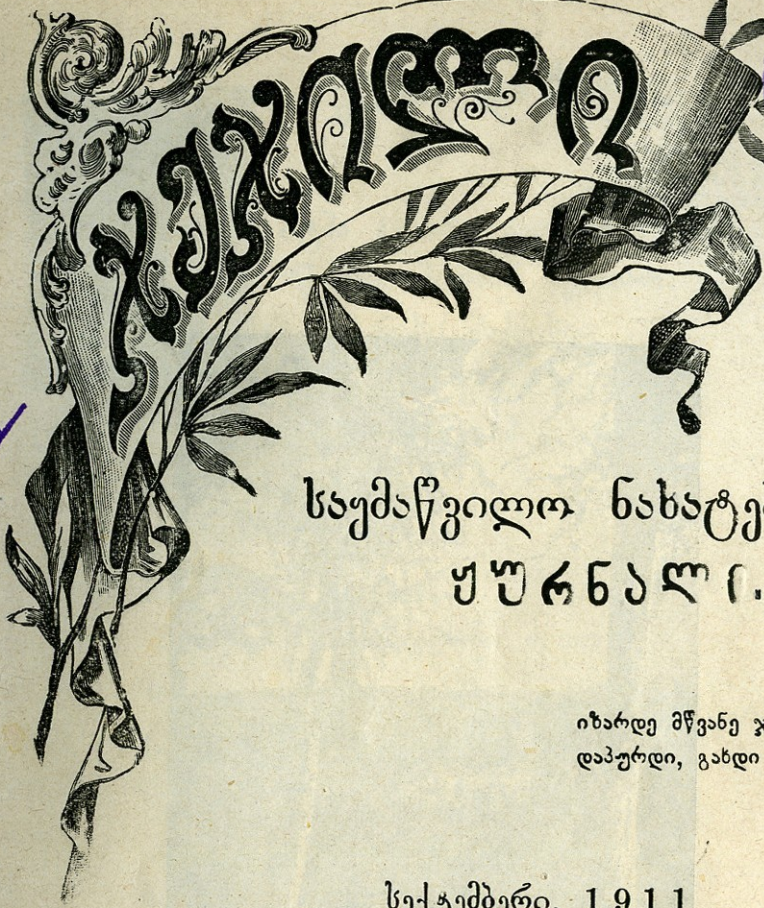 ჯეჯილი
საყმაწვილო ნახატე
ჟურნალი.
იზარდე მწვანე ჯ
დაპურდი, გახდი
სექტემბერი, 1911